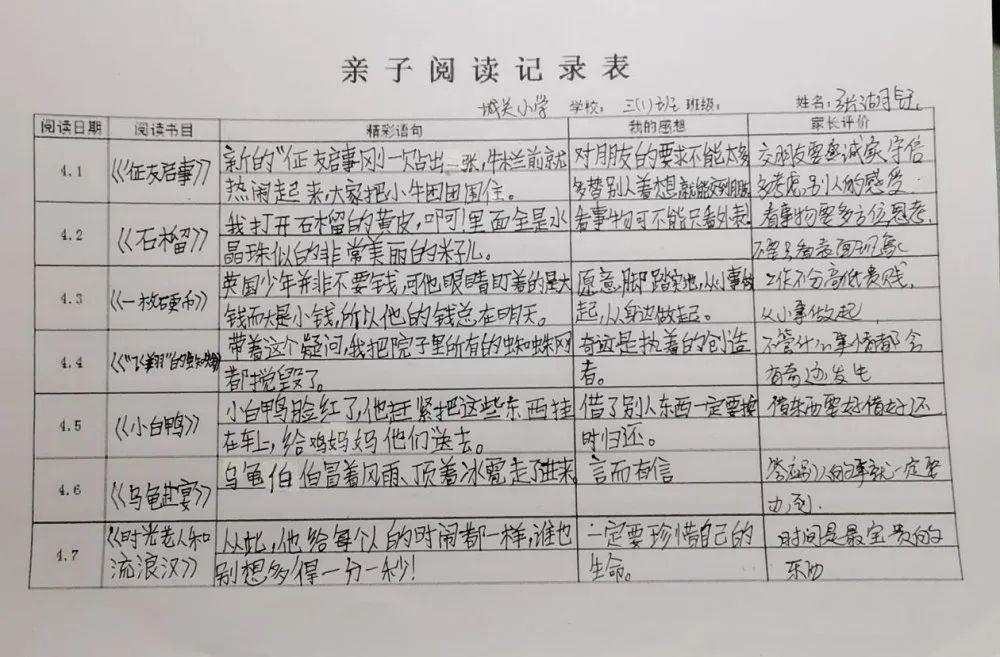 亲子阅读记录表
城关小学 学校: 三(1)班 班级: 姓名:
阅读日期 阅读书目 精彩语句 我的感想 家长评价
4.1 《征友启事》 新的"征友启事刚一贴出一张,牛栏前就 对朋友的要求不能太多 交朋友要要诚实守信
热闹起来,大家把小牛团团围住。 多替别人着想就能交到朋友 多考虑别人的感受
4.2 《石榴》 我打开石榴的黄皮,啊!里面全是水 看事物可不能只看外表 看事物要多方位思考,
晶珠似的非常美丽的籽儿。 不要只看表面现象
4.3 《一枚硬币》 英国少年并非不要钱,可他眼睛盯着的是大 愿意,脚踏实地,从小事做 工作不分高低贵贱,
钱而不是小钱,所以他的钱总在明天。 起,从身边做起。 从小事做起
4.4 带着这个疑问,我把院子里所有的蜘蛛网 奇迹是执着的创造 不管什么事情都会
都搅毁了。 者。 有奇迹发生
4.5 《小白鸭》 小白鸭脸红了,他赶紧把这些东西挂 借了别人东西一定要按 借东西要好借好还
在车上,给鸡妈妈他们送去。 时归还。
4.6 《乌龟赴宴》 乌龟伯伯冒着风雨、顶着冰雹走了进来 言而有信 答应别人的事就一定要
办到
4.7 《时光老人和 从此,他给每个人的时间都一样,谁也 一定要珍惜自己的 时间是最宝贵的
流浪汉》 别想多得一分一秒! 生命。 东西